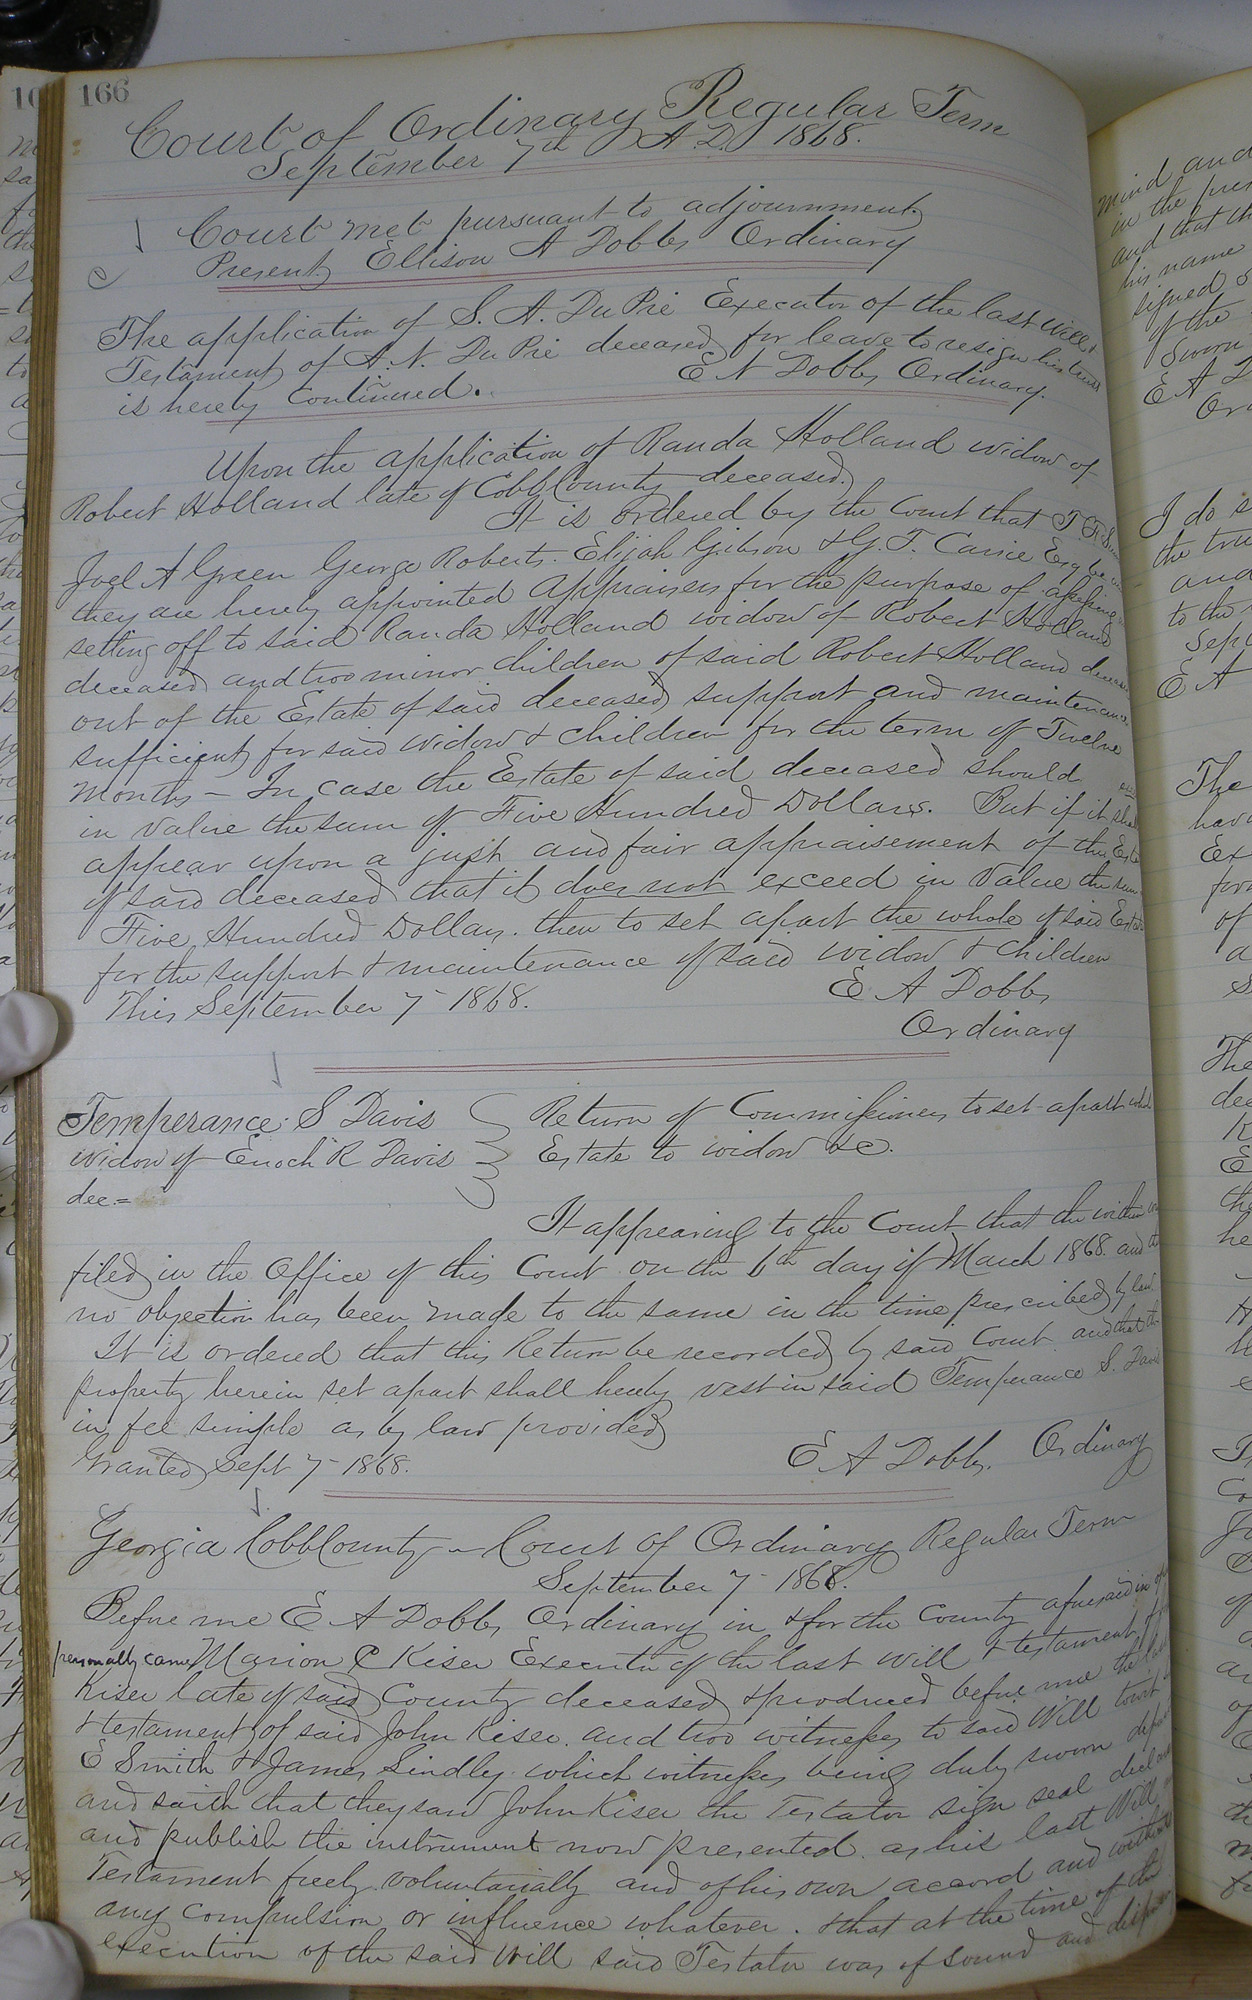 166
Court of Ordinary Regular Term
September 7th A.D. 1868.
Court met pursuant to adjournment,
Present, Ellison A Dobbs Ordinary
The application of S. A. DuPre Executor of the last Will &
Testament of A. N. DuPre deceased, for leave to resign his
is hereby Continued.
E A Dobbs Ordinary.
Upon the application of Randa Holland widow of
Robert Holland late of Cobb County deceased.
It is ordered by the Court that
Joel A Green George Roberts. Elijah Gibson & G. T. Carrie Esq be
they are hereby appointed Appraisers for the purpose of
setting off to said Randa Holland widow of Robert Holland
deceased and two minor children of said Robert Holland
out of the Estate of said deceased support and maintenance
sufficient for said widow & children for the term of Twelve
Months – In case the Estate of said deceased should
in value the sum of Five Hundred Dollars. But if it shall
appear upon a just and fair appraisement of the
of said deceased that it does not exceed in Value the sum
Five Hundred Dollars. then to set apart the whole of said
for the support & maintenance of said widow & children
This September 7 1868.
E A Dobbs
Ordinary
Temperance S Davis
widow of Enoch R Davis
dec=
Return of Commissioners to set apart whole
Estate to widow &c.
It appearing to the Court that the within
filed in the Office of this Court on the 6th day of March 1868. and
no objection has been made to the same in the time prescribed by law.
It is ordered that this Return be recorded by said Court and that the
property herein set apart shall hereby vest in said Temperance S. Davis
in fee simple as by law provided
Granted Sept 7 1868.
E A Dobbs. Ordinary
Georgia Cobb County – Court of Ordinary Regular Term
September 7 1868.
Before me E A Dobbs Ordinary in & for the County aforesaid in
personally came Marion C Kiser Executor of the last will & testament of
Kiser late of said County deceased & produced before me the last
& testament of said John Kiser. and two witnesses to said Will towit
E Smith & James Lindley which witnesses being duly sworn
and saith that they saw John Kiser the Testator sign seal declare
and publish the instrument now presented. as his last Will
Testament freely voluntarially and of his own accord and without
any compulsion or influence whatever. & that at the time of the
execution of the said Will said Testator was of sound and